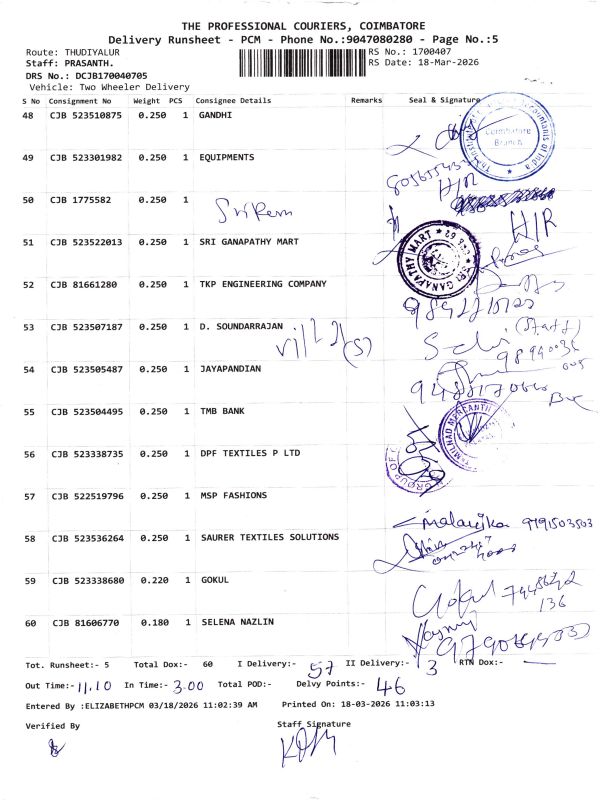 THE PROFESSIONAL COURIERS, COIMBATORE
Delivery Runsheet - PCM - Phone No.:9047080280 - Page No.:5
Route: THUDIYALUR
RS No.: 1700407
Staff: PRASANTH.
RS Date: 18-Mar-2026
DRS No.: DCJB170040705
Vehicle: Two Wheeler Delivery
S No Consignment No Weight PCS Consignee Details Remarks Seal & Signature
48 CJB 523510875 0.250 1 GANDHI
Coimbatore Branch
49 CJB 523301982 0.250 1 EQUIPMENTS
H/R
50 CJB 1775582 0.250 1
H/R
51 CJB 523522013 0.250 1 SRI GANAPATHY MART
SRI GANAPATHY MART
52 CJB 81661280 0.250 1 TKP ENGINEERING COMPANY
53 CJB 523507187 0.250 1 D. SOUNDARRAJAN
(Staff)
54 CJB 523505487 0.250 1 JAYAPANDIAN
55 CJB 523504495 0.250 1 TMB BANK
56 CJB 523338735 0.250 1 DPF TEXTILES P LTD
57 CJB 522519796 0.250 1 MSP FASHIONS
9791503503
58 CJB 523536264 0.250 1 SAURER TEXTILES SOLUTIONS
59 CJB 523338680 0.220 1 GOKUL
Gokul
136
60 CJB 81606770 0.180 1 SELENA NAZLIN
Tot. Runsheet:- 5 Total Dox:- 60 I Delivery:- 57 II Delivery:- 3 RTN Dox:-
Out Time:- 11.10 In Time:- 3.00 Total POD:- Delvy Points:- 46
Entered By :ELIZABETHPCM 03/18/2026 11:02:39 AM Printed On: 18-03-2026 11:03:13
Verified By Staff Signature